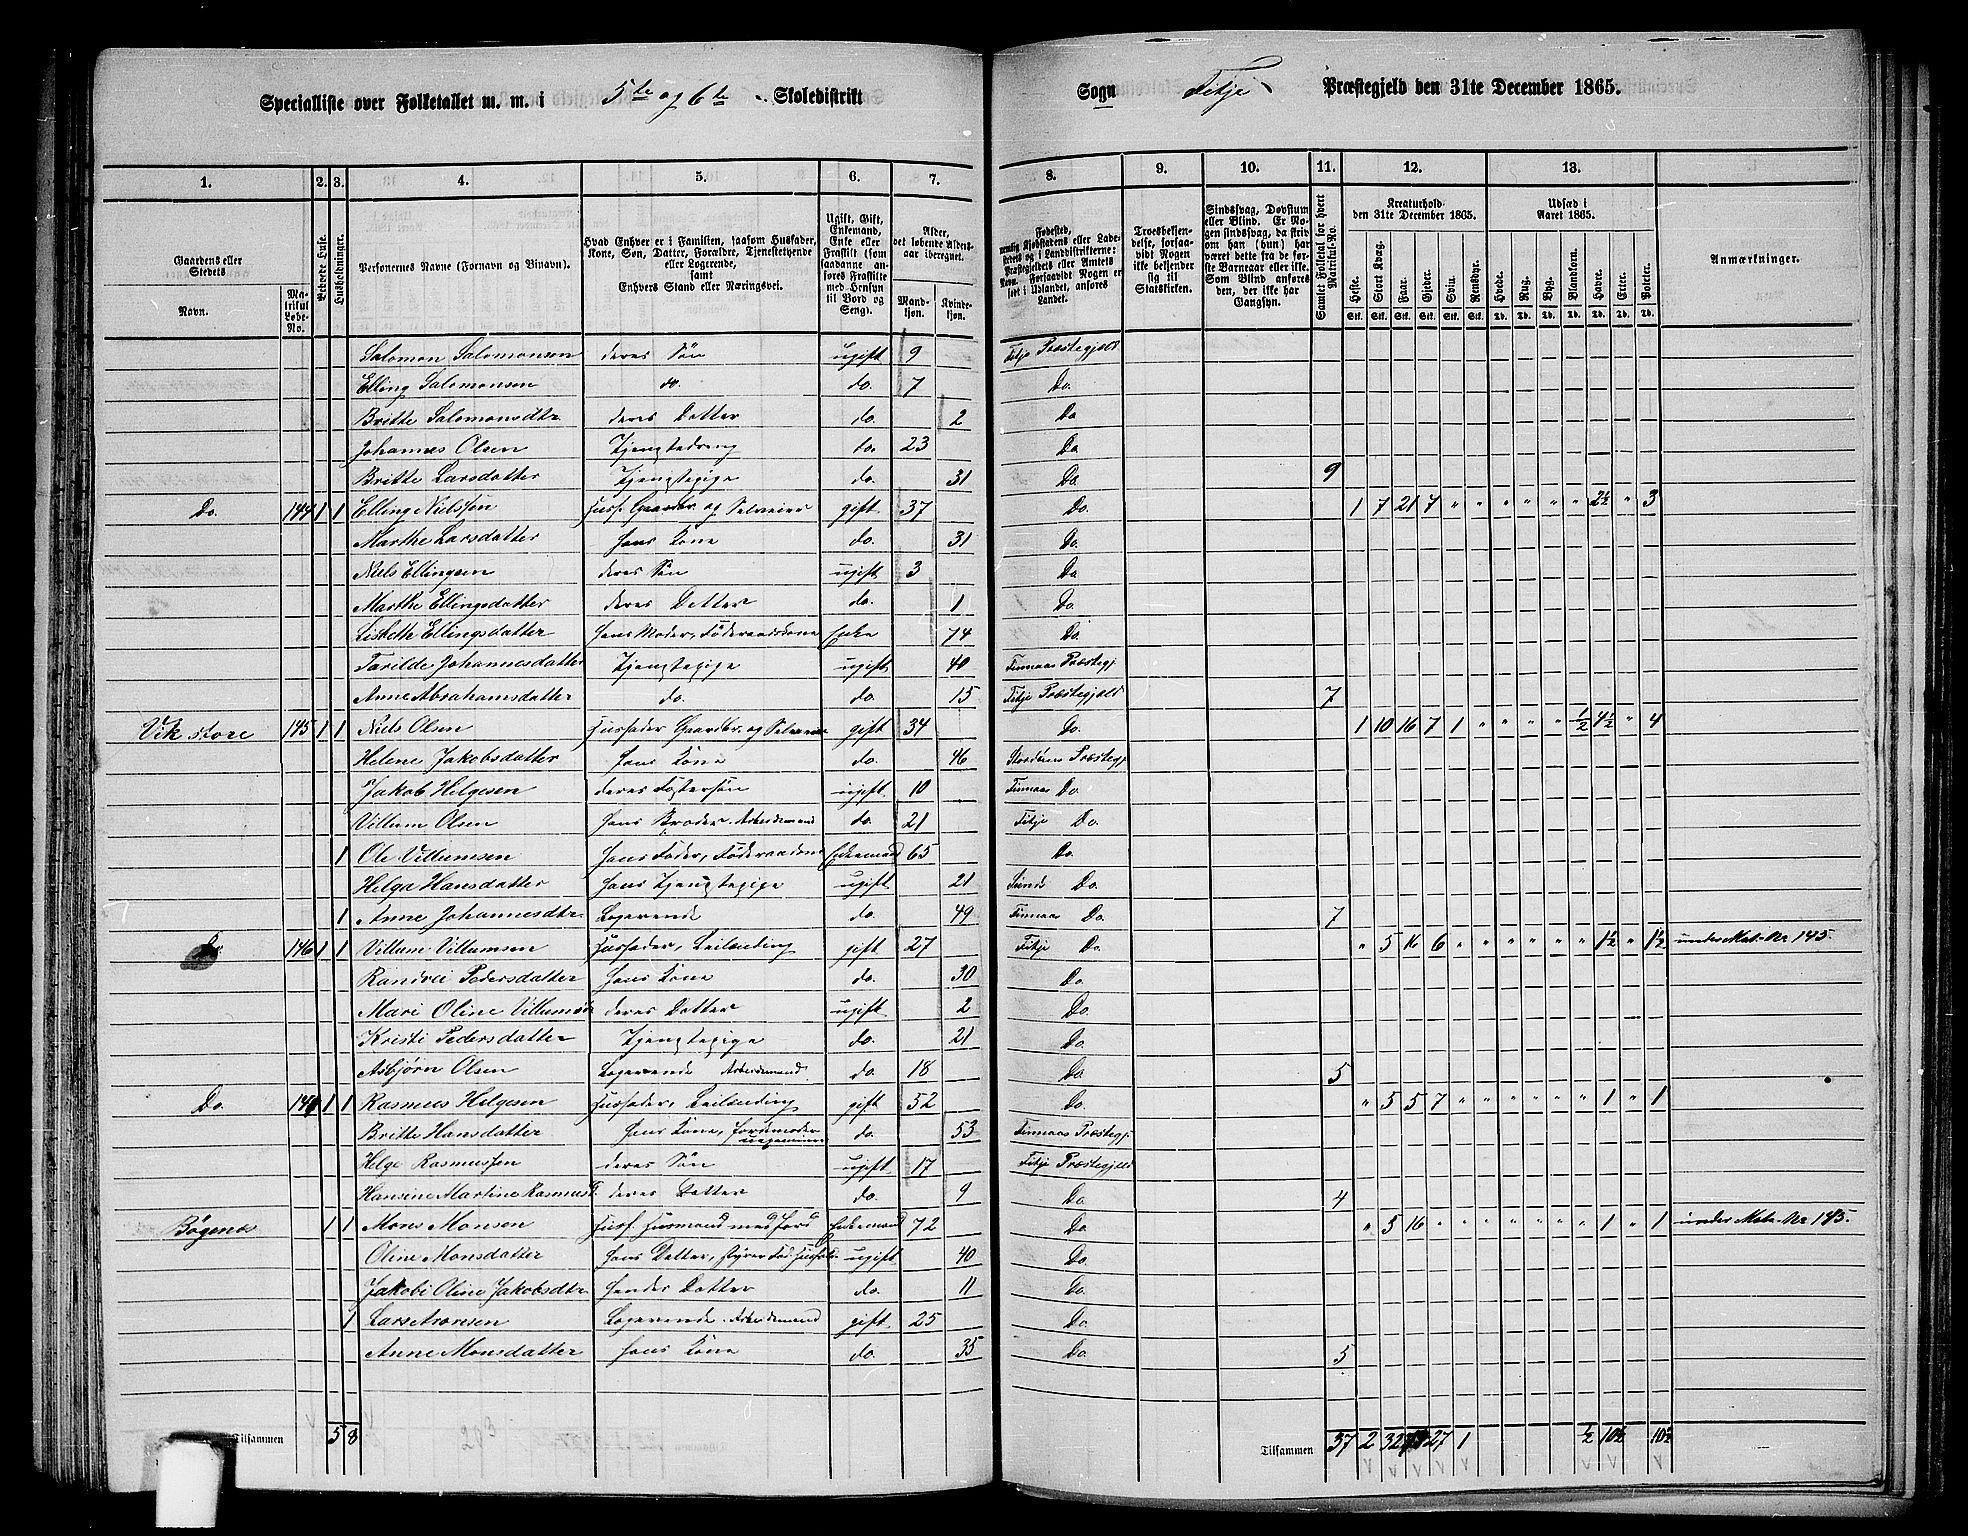 Specialliste over Folketallet m. m. i 5te og 6te Skoledistrikt Sogn Fitje Præstegjeld den 31te December 1865.
1. 2. 3. 4. 5. 6. 7. 8. 9. 10. 11. 12. 13.
Gaardens eller Stedets Navn. Matrikul Løbe-No. Beboede Huse. Husholdninger. Personernes Navne (Fornavn og Tilnavn). Hvad Enhver er i Familien, saasom Husfader, Kone, Søn, Datter, Forældre, Tjenestetyende eller Logerende, samt Enhvers Stand eller Næringsvei. Ugift, Gift, Enkemand, Enke eller Fraskilt (som saadanne anføres Fraskilte med Hensyn til Bord og Seng). Alder, det løbende Alders-aar iberegnet. Mandkjøn. Kvindekjøn. Fødested, Troesbekjendelse, forsaavidt Nogen ikke bekjender sig til Statskirken. Sindssvag, Døvstum eller Blind. Samlet Folketal for hvert Matrikul-No. Kreaturhold den 31te December 1865. Udsæd i Aaret 1865. Anmærkninger.
Heste. Stort Kvæg. Faar. Gjeder. Svin. Rensdyr. Hvede. Rug. Byg. Blandkorn. Havre. Erter. Poteter.
Salomon Salomonsen deres Søn ugift 9 Fitje Præstegjæld
Elling Salomonsen do. do. 7 Do.
Britte Salomonsdtr deres Datter do. 2 Do
Johannes Olsen Tjenstedreng do. 23 Do
Britte Larsdatter Tjenstepige do. 31 Do. 9
Do. 144 1 1 Elling Nielssøn Husf. Gaardbr. og Selveier gift 37 Do. 1 7 21 7 " " " " " " 2½ " 3
Marthe Larsdatter hans Kone do. 31 Do.
Niels Ellingsen deres Søn ugift 3 Do
Marthe Ellingsdatter deres Datter do. 1 Do.
Lisbeth Ellingsdatter hans Moder, Føderaadskone Enke 74 Do.
Tarilde Johannesdatter Tjenstepige ugift 40 Finnaas Præstegj
Anne Abrahamsdatter do. do. 15 Fitje Præstegjæld 7
Vik store 145 1 1 Niels Olsen Husfader Gaardbr. og Selveier gift 34 Do. 1 10 16 7 1 " " " " ½ 4½ " 4
Helene Jakobsdatter hans Kone do. 46 Stordøens Præstegj.
Jakob Helgesen deres Fostersøn ugift 10 Finnaas Do.
Villum Olsen hans Broder. Arbeidsmand do. 21 Fitje Do.
1 Ole Villumsen hans Fader, Føderaadsm. Enkemand 65 Do.
Helga Hansdatter hans Tjenstepige ugift 21 Do.
1 Anne Johannesdtr Logerende do. 49 Finnaas Do. 7
Do 146 1 1 Villum Villumsen Husfader, Leilænding gift 27 Fitje Do. " 5 16 6 " " " " " " 1½ " 1½ under Mat. Nr 145.
Randvei Pedersdatter hans Kone do. 30 Do.
Mari Oline Villumsdtr deres Datter ugift 2 Do.
Kristi Pedersdatter Tjenstepige do. 21 Do.
Asbjørn Olsen Logerende Arbeidsmand do. 18 Do. 5
Do. 1 1 Rasmus Helgesen Husfader, Leilænding gift 52 Do. " 5 5 7 " " " " " " 1 " 1
Britte Hansdatter hans Kone, Jordmoder do. 53 Finnaas Præstegj.
Helge Rasmussen deres Søn ugift 17 Fitje Præstegjæld
Hansine Martine Rasmusd. deres Datter do. 9 Do. 4
Bøgenæs 1 1 Mons Monsen Husf. Husmand med Jord Enkemand 72 Do. " 5 16 " " " " " " " 1 " 1 under Mat. Nr 145.
Oline Monsdatter hans Datter, styrer Fad. Hushold. ugift 40 Do.
Jakobi Oline Jakobsdtr hendes Datter do. 11 Do.
1 Lars Aronsen Logerende Arbeidsmand gift 25 Do.
Anne Monsdatter hans Kone do. 35 Do. 5
Tilsammen 5 8 Tilsammen 37 2 32 27 1 ½ 10½ 10½